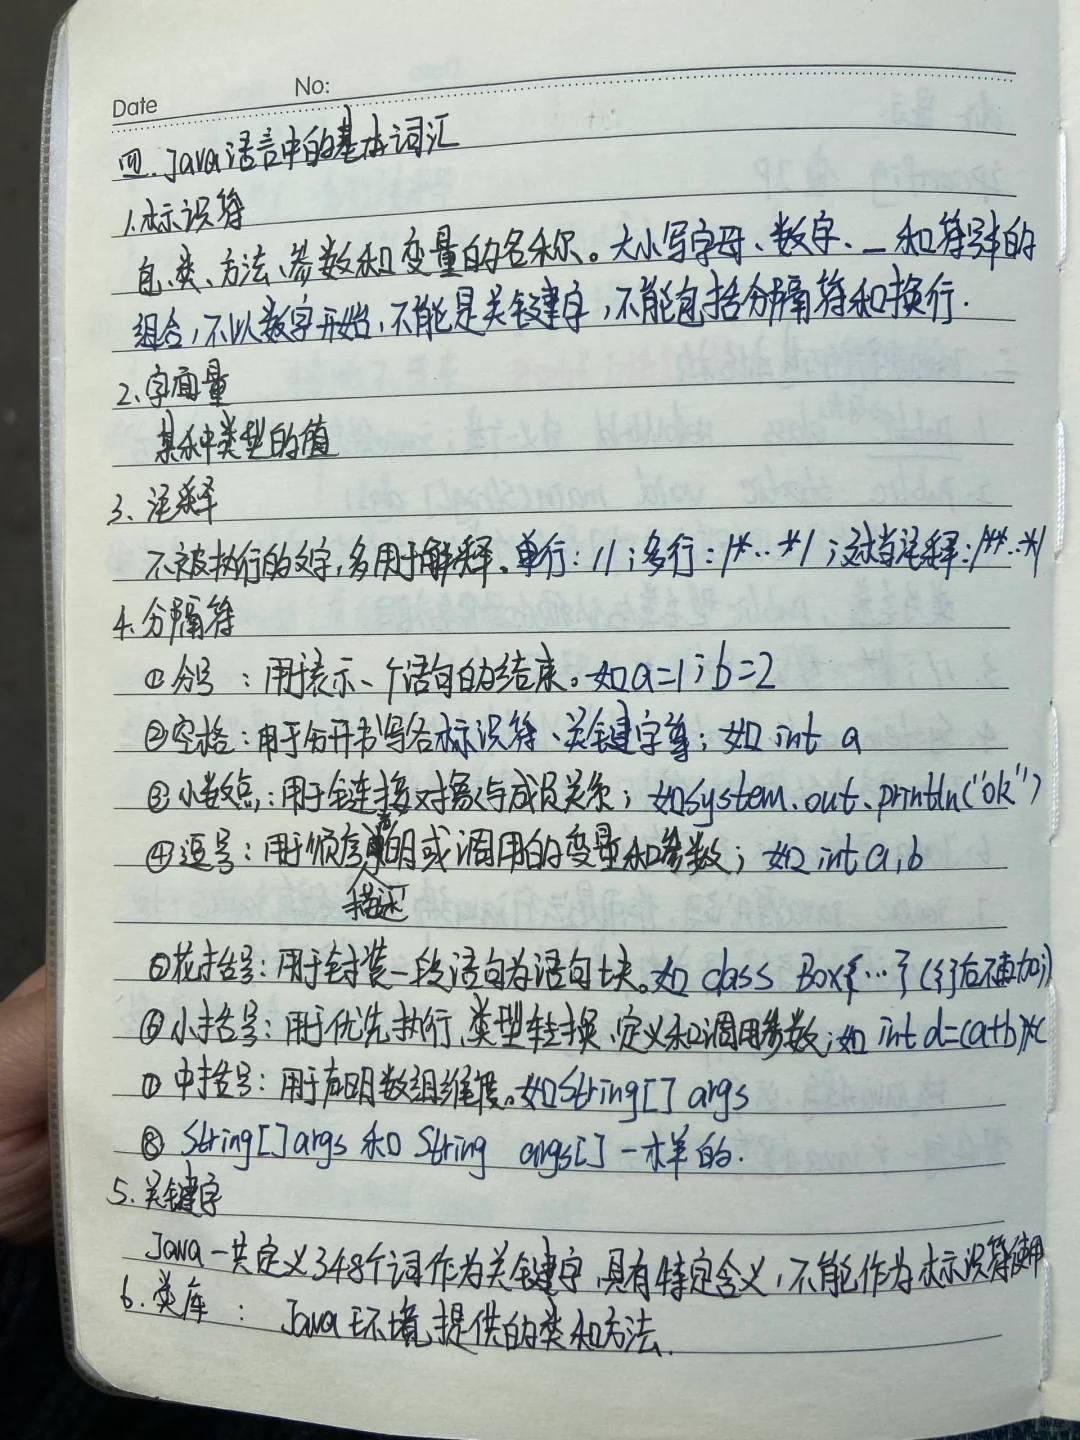 Date No:
四. Java语言中的基本词汇
1.标识符
包、类、方法、参数和变量的名称。大小写字母、数字、_和符号的
组合,不以数字开始,不能是关键字,不能包括分隔符和换行.
2.字面量
某种类型的值
3、注释
不被执行的文字,多用于解释。单行://;多行:/*...*/;文档注释:/**...*/
4.分隔符
①分号:用于表示一个语句的结束。如a=1;b=2
②空格:用于分开书写各标识符、关键字等;如int a
③小数点:用于链接对象与成员关系;如System.out.println("ok")
④逗号:用于顺序声明或调用的变量和参数;如int a,b
描述
⑤花括号:用于封装一段语句为语句块。如class Box{...}(行后不再加;)
⑥小括号:用于优先执行、类型转换、定义和调用参数;如int d=(a+b)*c
⑦中括号:用于声明数组维度。如String[] args
⑧ String[] args 和 String args[] 一样的.
5.关键字
Java一共定义了48个词作为关键字,具有特定含义,不能作为标识符使用
6.类库:Java环境提供的类和方法.